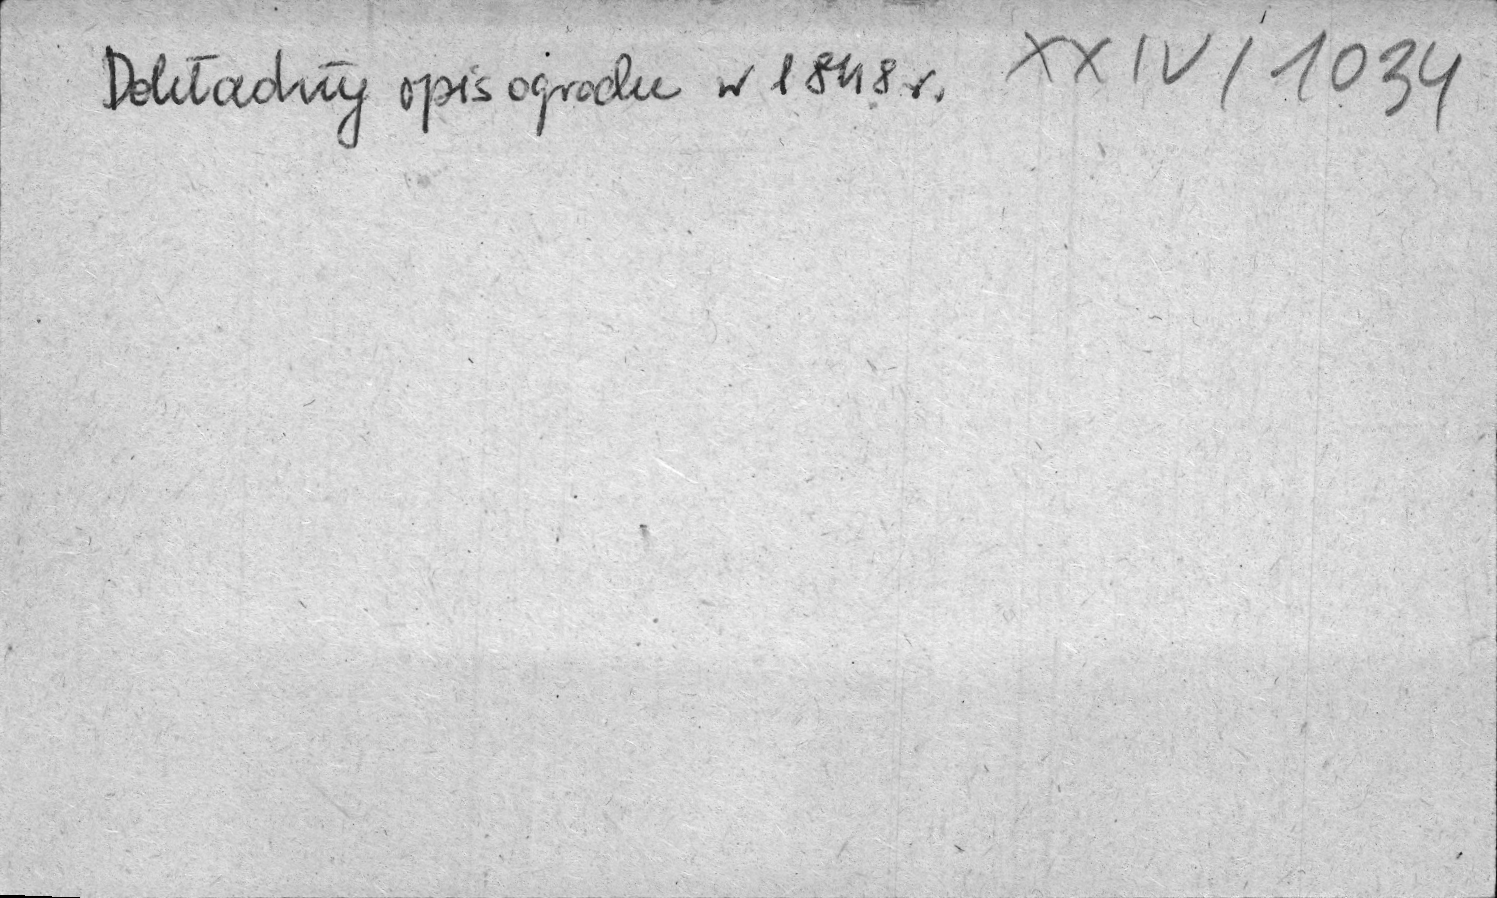 Dokładny opis ogrodu w 1848 r. XXIV/1034